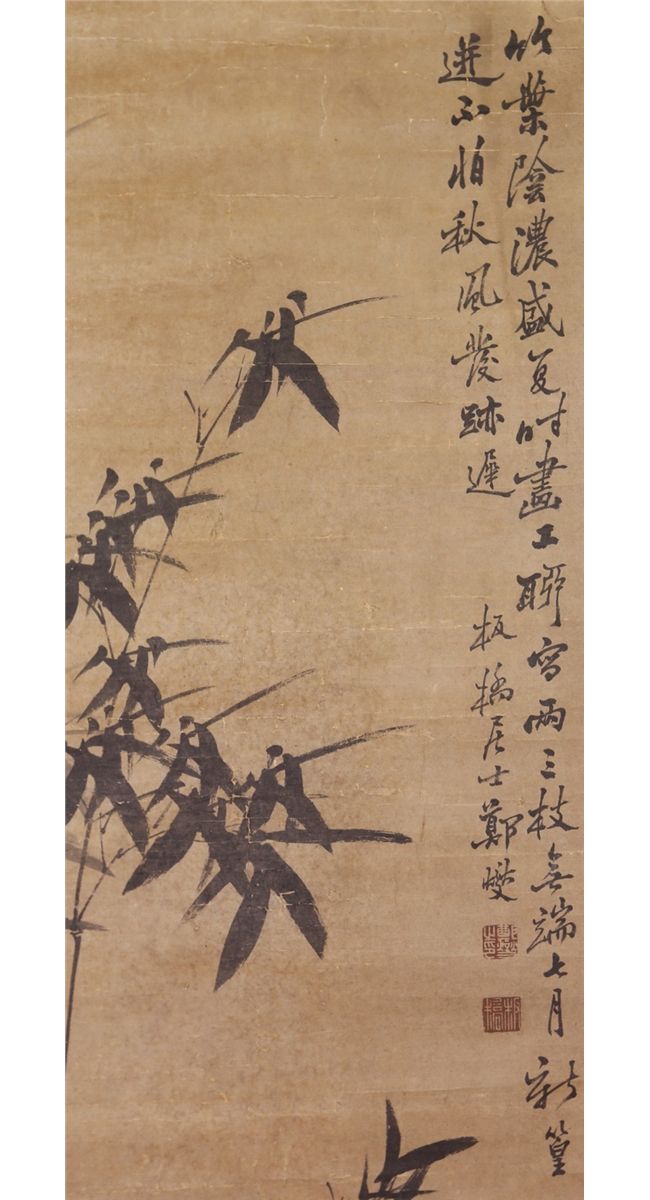 竹葉陰濃盛夏時畫工聊寫兩三枝無端七月新篁
迸不怕秋風發跡遲
板橋居士鄭燮
鄭燮之印
板橋